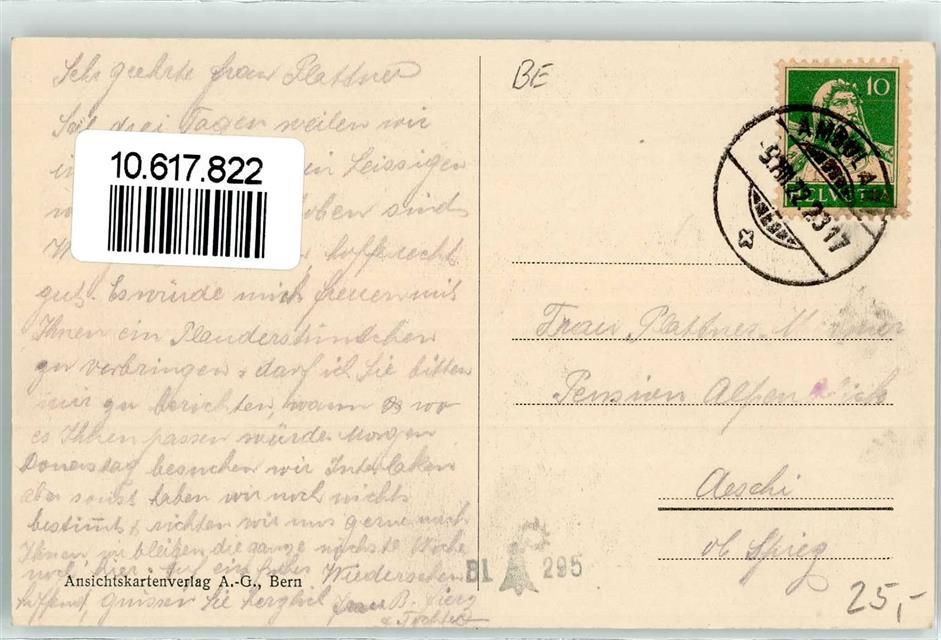 Sehr geehrte Frau Plattner
Seit drei Tagen weilen wir
in Leissigen
oben sind
W hoffe recht
gut. Es würde mich freuen mit
Ihnen ein Plauderstündchen
zu verbringen & darf ich Sie bitten
mir zu berichten, wann & wo
es Ihnen passen würde. Morgen
Donerstag besuchen wir Interlaken
aber sonst haben wir noch nichts
bestimmt & richten wir uns gerne nach
Ihnen wir bleiben die ganze nächste Woche
noch hier. Auf ein frohes Wiedersehen
hoffend grüssen Sie herzlich Frau B.
& Tochter
10.617.822
Ansichtskartenverlag A.-G., Bern
BE
10
HELVETIA
AMBULA
22.2317
Frau Plattner-
Pension Alpenblick
Aeschi
ob Spiez
BI 295
25,-